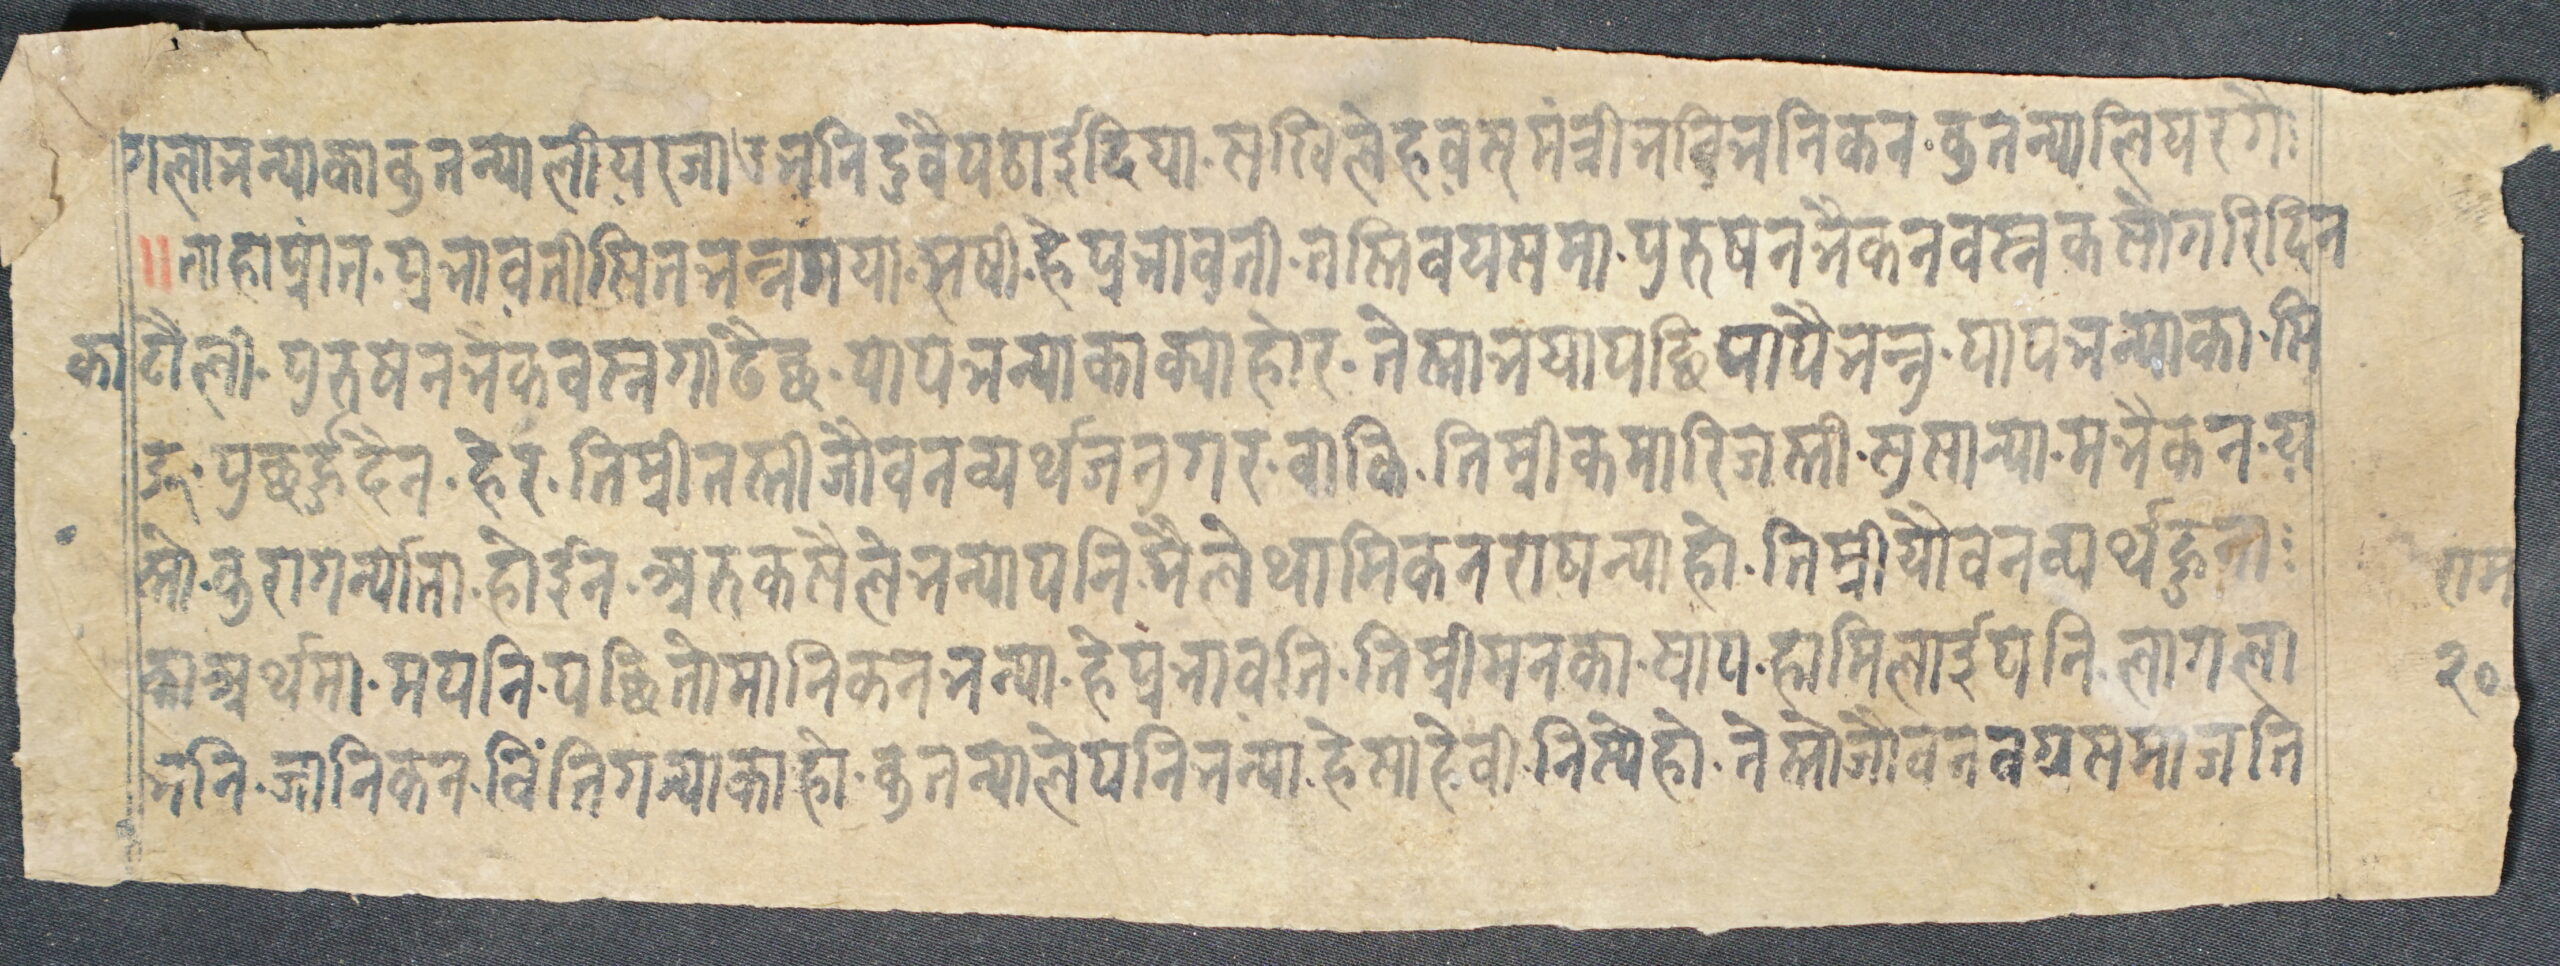 गलाभन्याकाकुतन्यालीघरजाउभनिदुवैपठाईदिया. सखिलेहवस्मंत्रीभविभनिकन. कुतन्यालिघरगै
॥ताहाप्रांत. प्रभावतीसितभन्नगया. भषी. हेप्रभावती. तस्तिवयसमा. पुरुषनभैकनवस्नकसोगरिदिन
काटौली. पुरुषनभैकवस्नगांढैछ. पापभन्याकाक्याहोर. तेस्माभयापछिपापैभन्नु. पापभन्याका. सि
ङ. पुछर्हुदैन. हेर. तिम्रीतस्तीजौवनव्यर्थजनुगर. वाकि. तिम्रीकमारिजस्ती. सुसान्या. मभैकन. य
स्तो. कुरागर्न्यात्ता. होईन. अरुकसैलेभन्यापनि. मैलेथामिकनराषन्याहो. तिम्रीयौवनव्यर्थहुना
काअर्थमा. मपनि. पछितोमानिकन. भन्या. हेप्रभावति. तिम्रीमनका. पाप. हामिलाईपनि. लागला
भनि. जानिकन. विंतिगन्याकाहो. कुतन्यालेपनिभन्या. हेसाहेवी. निस्पेहो. तेस्तोजौवनवयसमाजति
राम
२०